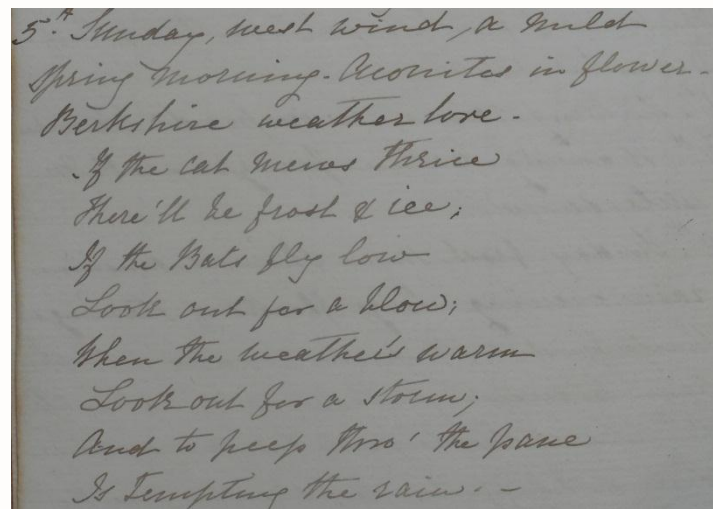 5th. Sunday, west wind, a mild
spring morning. Aconites in flower.
Berkshire weather lore.
If the cat mews thrice
There'll be frost & ice;
If the Bats fly low
Look out for a blow;
When the weather's warm
Look out for a storm;
And to peep thro' the pane
Is Tempting the rain. -